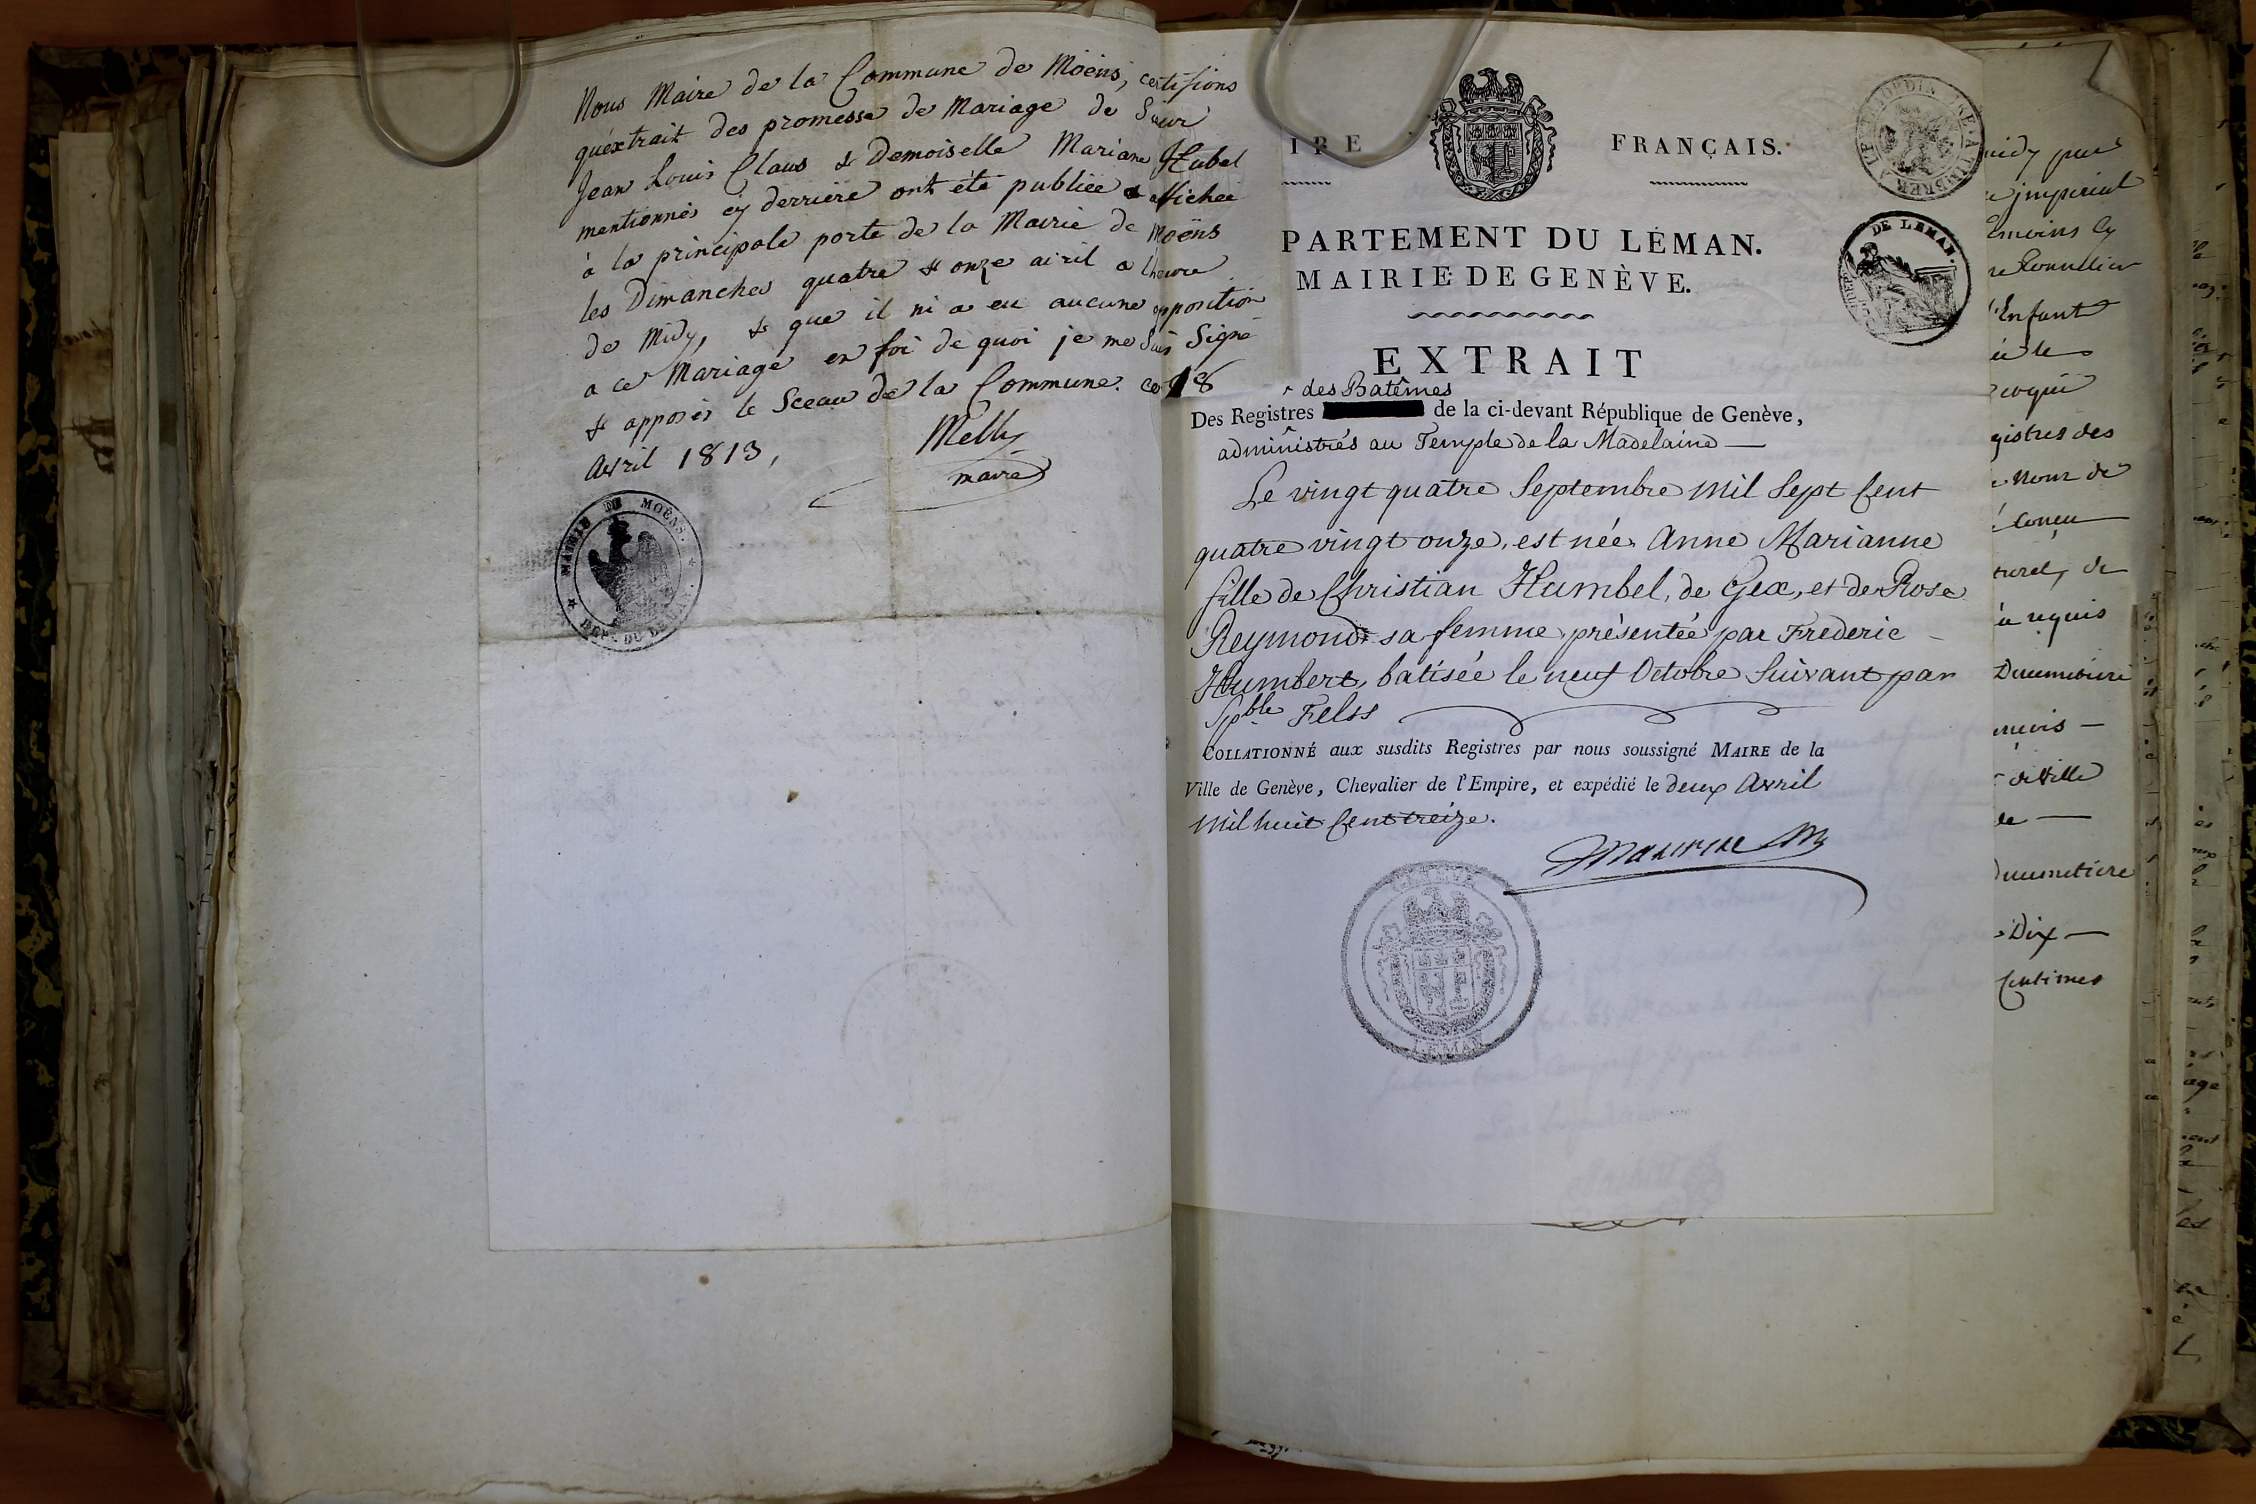 Nous Maire de la Commune de Moëns, certifions
qu'extrait des promesse de Mariage de Sieur
Jean Louis Claus & Demoiselle Mariane Hubel
mentionnés cy derrière ont été publiée & affichée
à la principale porte de la Mairie de Moëns
les Dimanches quatre & onze avril a l'heure
de Midy, & que il ni a eu aucune opposition
a ce Mariage en foi de quoi je me suis Signé
& apposés le Sceau de la Commune. ce 18
Avril 1813,
Melly
maire
MAIRIE DE MOËNS.
DEP. DU LEMAN.
IRE FRANÇAIS.
A L'EXTRAORDINAIRE
TIMBRER
PARTEMENT DU LÉMAN.
DE LEMAN.
MAIRIE DE GENÈVE.
EXTRAIT
des Batêmes
Des Registres de la ci-devant République de Genève,
administrés au Temple de la Madelaine
Le vingt quatre Septembre mil Sept Cent
quatre vingt onze, est née Anne Marianne
fille de Christian Humbel, de Gex, et de Rose
Reymond sa femme, présentée par Frederic
Humbert, batisée le neuf Octobre Suivant par
Spble Felss
COLLATIONNÉ aux susdits Registres par nous soussigné MAIRE de la
Ville de Genève, Chevalier de l'Empire, et expédié le deux Avril
mil huit Cent treize.
Maurice
GENEVE
LEMAN
midy pur
impérial
témoins Cy
L'Enfant
gistres des
Nom de
Conçu
turel, de
requis
Ducimetiere
de Ville
de
Ducimetiere
Dix
Centimes